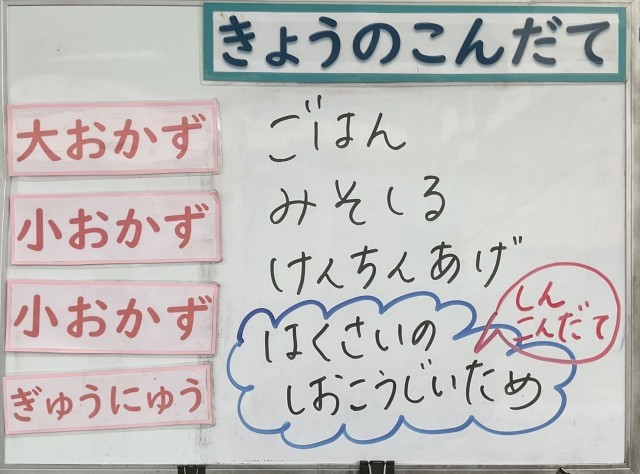 きょうのこんだて
大おかず
ごはん
小おかず
みそしる
けんちんあげ
小おかず
はくさいの
しおこうじいため
しん
こんだて
ぎゅうにゅう